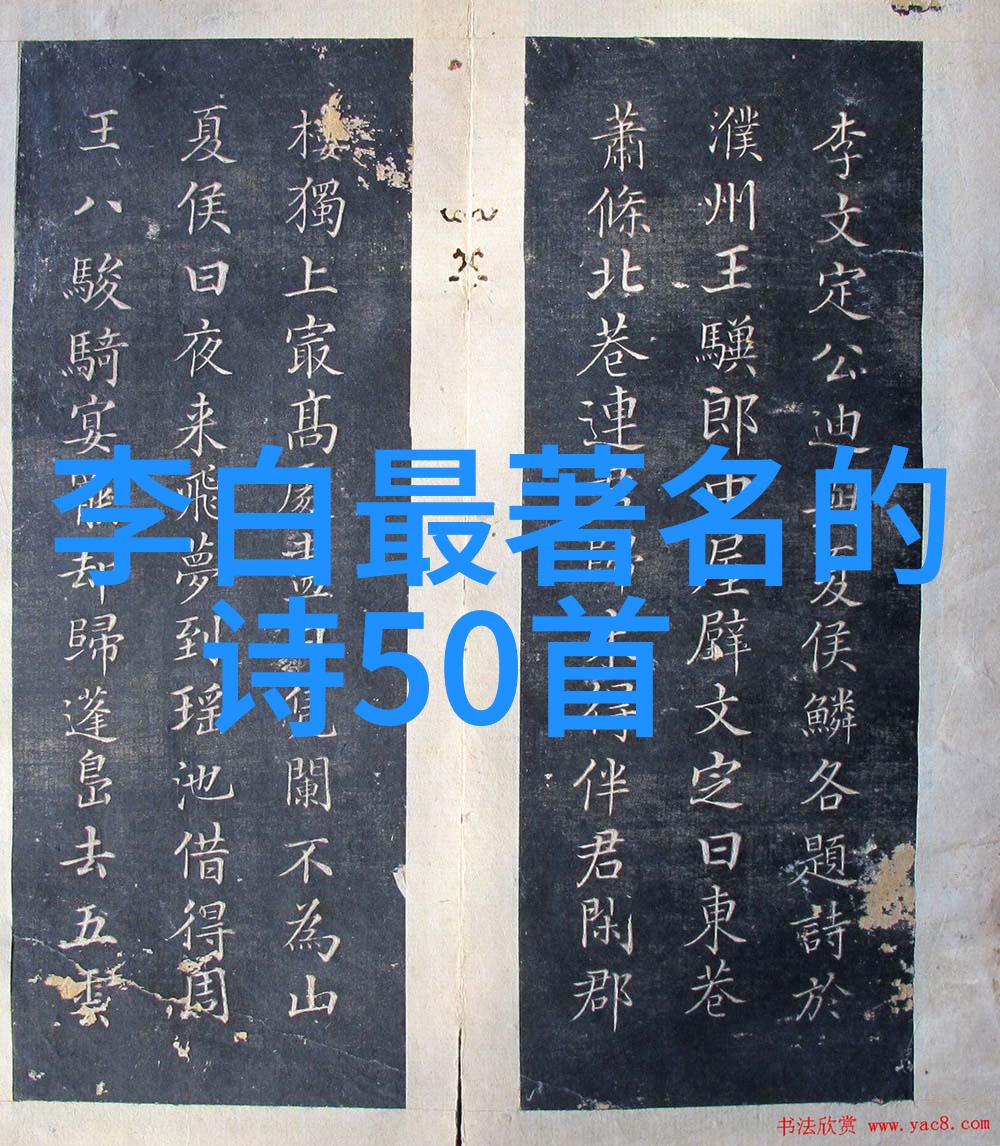 李文定公迪侯鱗各題詩於
濮州王驥郎中屋壁文定曰東巷
蕭條北巷連伴君閑郡
樓獨上冣高闌不為山
夏侯曰夜来飛夢到瑶池借得周
王八駿騎宴却歸蓬島去五雲
李白最著名的
诗50首
书法欣赏 www.yac8.com